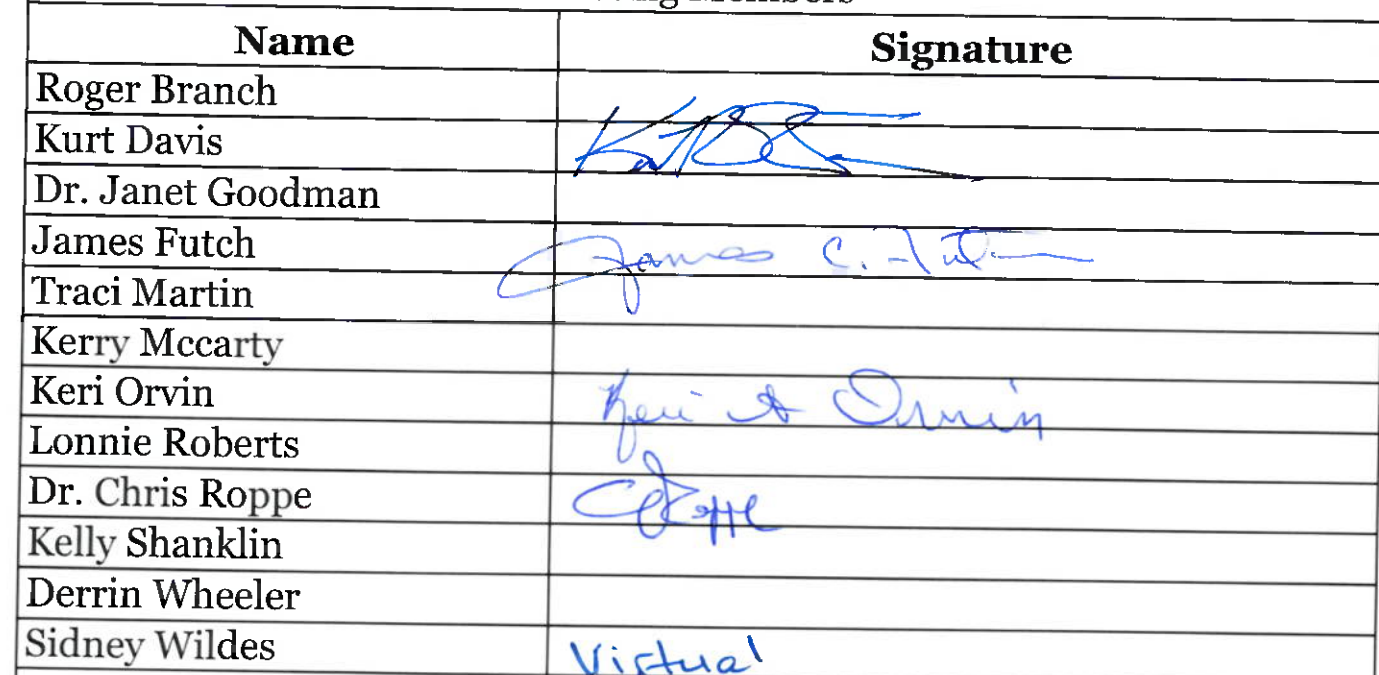 Members
Name Signature
Roger Branch
Kurt Davis
Dr. Janet Goodman
James Futch James C. Fut
Traci Martin
Kerry Mccarty
Keri Orvin Keri A Orvin
Lonnie Roberts
Dr. Chris Roppe
Kelly Shanklin
Derrin Wheeler
Sidney Wildes Virtual